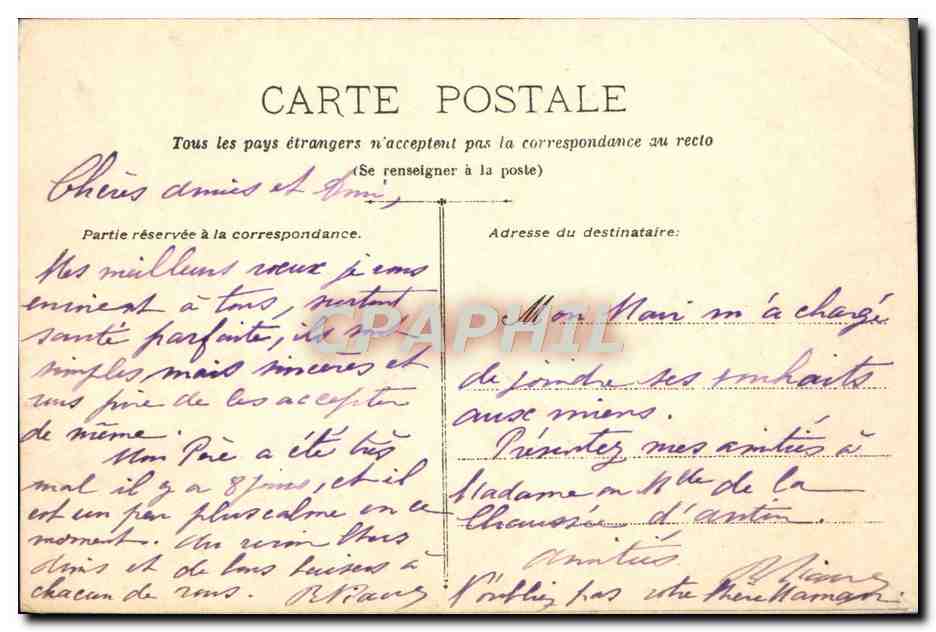 CARTE POSTALE
Tous les pays étrangers n'acceptent pas la correspondance au recto
(Se renseigner à la poste)
Chères amies et Ami,
Partie réservée à la correspondance.
Mes meilleurs vœux je vous
envoient à tous, surtout
santé parfaite, ils sont
simples mais sincères et
vous prie de les accepter
de même.
Mon Père a été très
mal il y a 8 jours, et il
est un peu plus calme en ce
moment. Au revoir Chers
Amis et de bons baisers à
chacun de vous.
Adresse du destinataire:
Mon Mari m'a chargé
de joindre ses souhaits
aux miens.
Présentez mes amitiés à
Madame ou Mlle de la
Chaussée d'antin.
Amitiés
N'oubliez pas votre chère Maman.
CPAPHIL